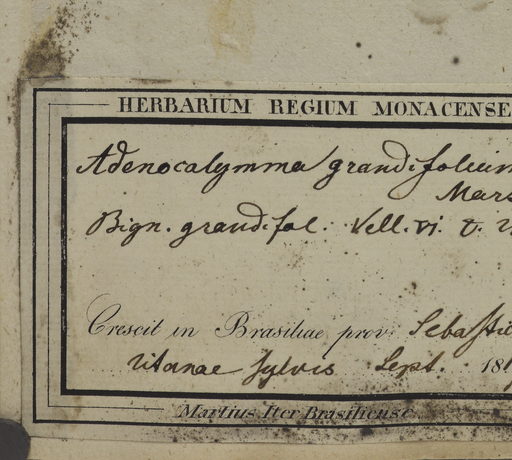 HERBARIUM REGIUM MONACENSE
Adenocalymma grandifolium
Mars
Bign. grandifol. Vell. vi. t.
Crescit in Brasiliae prov. Sebastio
sylvis Sept. 181
Martius Iter Brasiliense